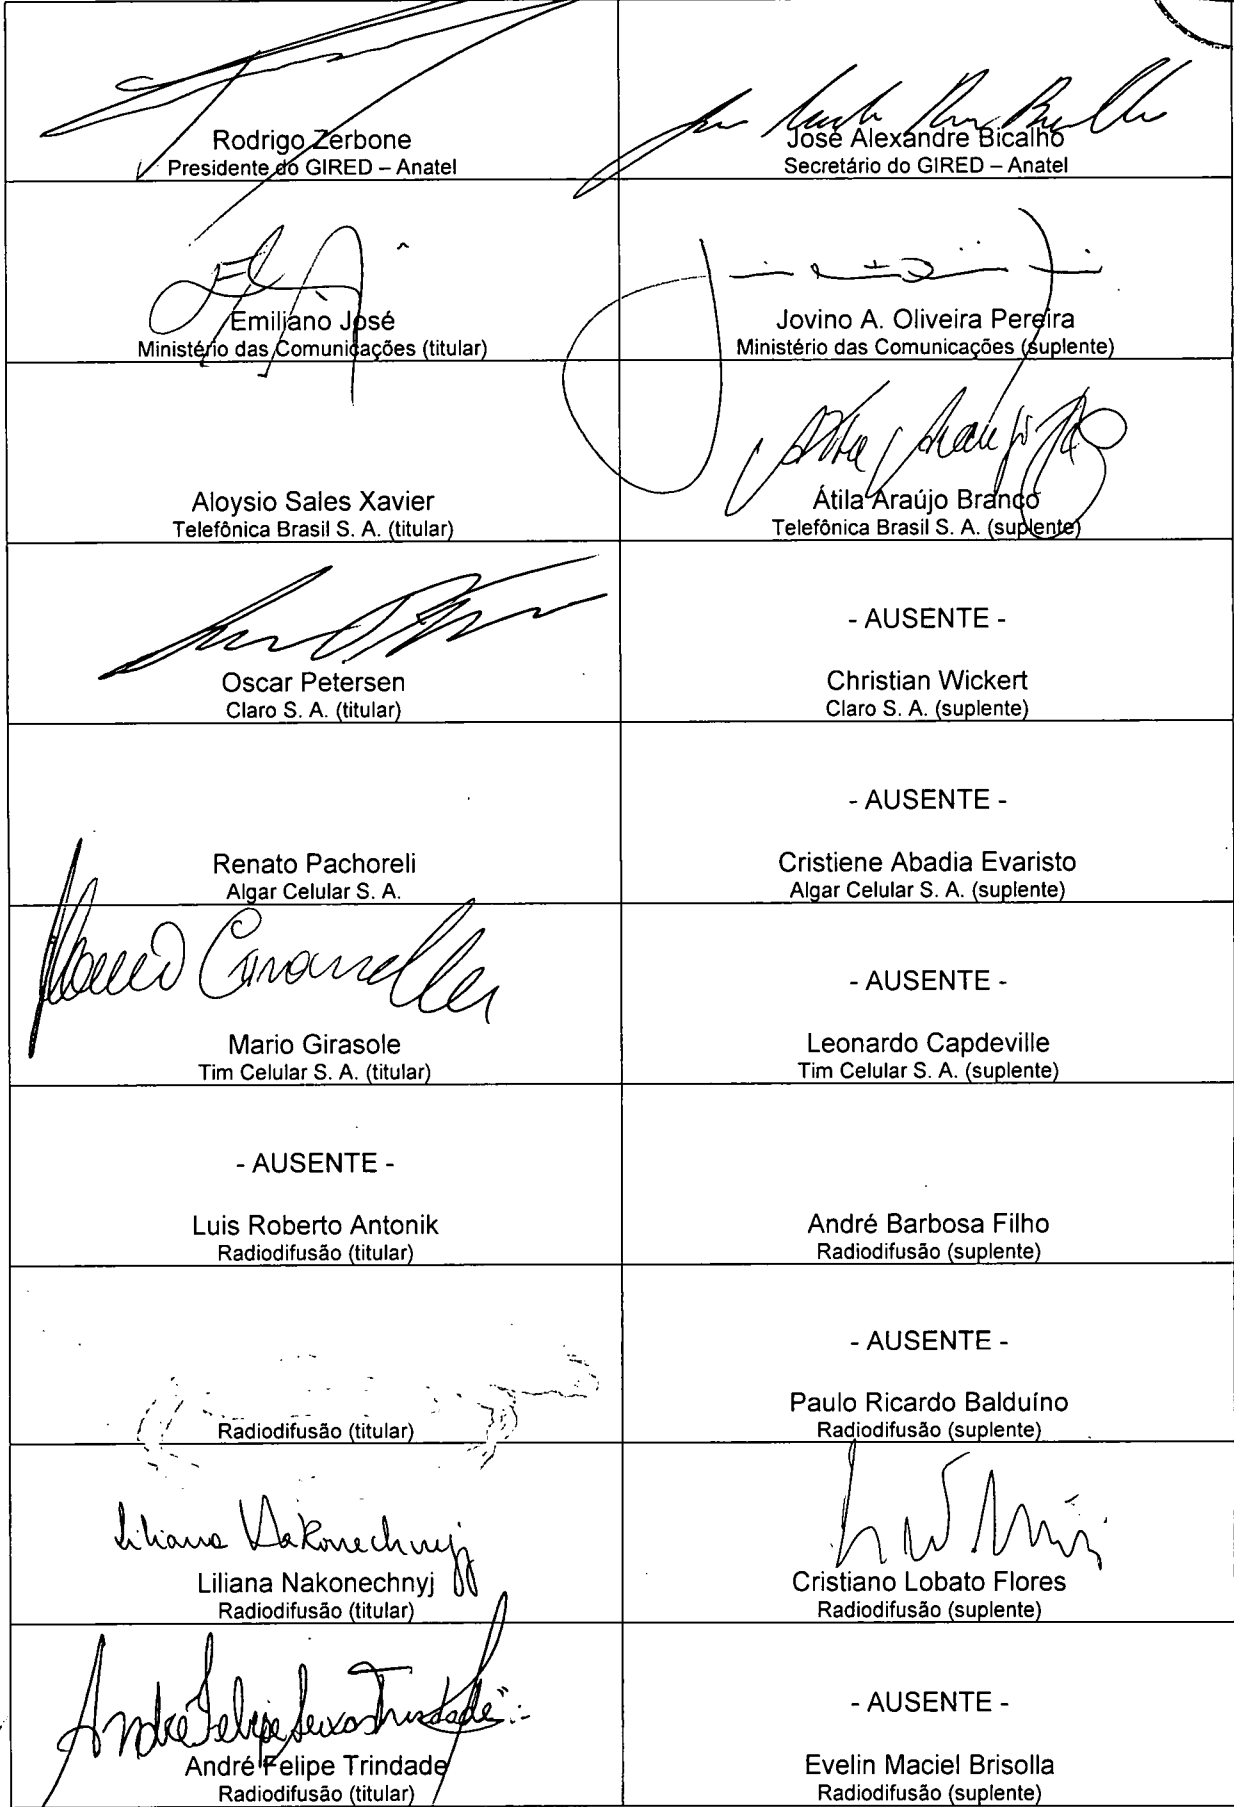 Rodrigo Zerbone
Presidente do GIRED – Anatel
José Alexandre Bicalho
Secretário do GIRED – Anatel
Emiliano José
Ministério das Comunicações (titular)
Jovino A. Oliveira Pereira
Ministério das Comunicações (suplente)
Aloysio Sales Xavier
Telefônica Brasil S. A. (titular)
Átila Araújo Branco
Telefônica Brasil S. A. (suplente)
Oscar Petersen
Claro S. A. (titular)
- AUSENTE -
Christian Wickert
Claro S. A. (suplente)
Renato Pachoreli
Algar Celular S. A.
- AUSENTE -
Cristiene Abadia Evaristo
Algar Celular S. A. (suplente)
Mario Girasole
Tim Celular S. A. (titular)
- AUSENTE -
Leonardo Capdeville
Tim Celular S. A. (suplente)
- AUSENTE -
Luis Roberto Antonik
Radiodifusão (titular)
André Barbosa Filho
Radiodifusão (suplente)
Radiodifusão (titular)
- AUSENTE -
Paulo Ricardo Balduíno
Radiodifusão (suplente)
Liliana Nakonechnyj
Liliana Nakonechnyj
Radiodifusão (titular)
Cristiano Lobato Flores
Radiodifusão (suplente)
André Felipe Seixas Trindade
André Felipe Trindade
Radiodifusão (titular)
- AUSENTE -
Evelin Maciel Brisolla
Radiodifusão (suplente)